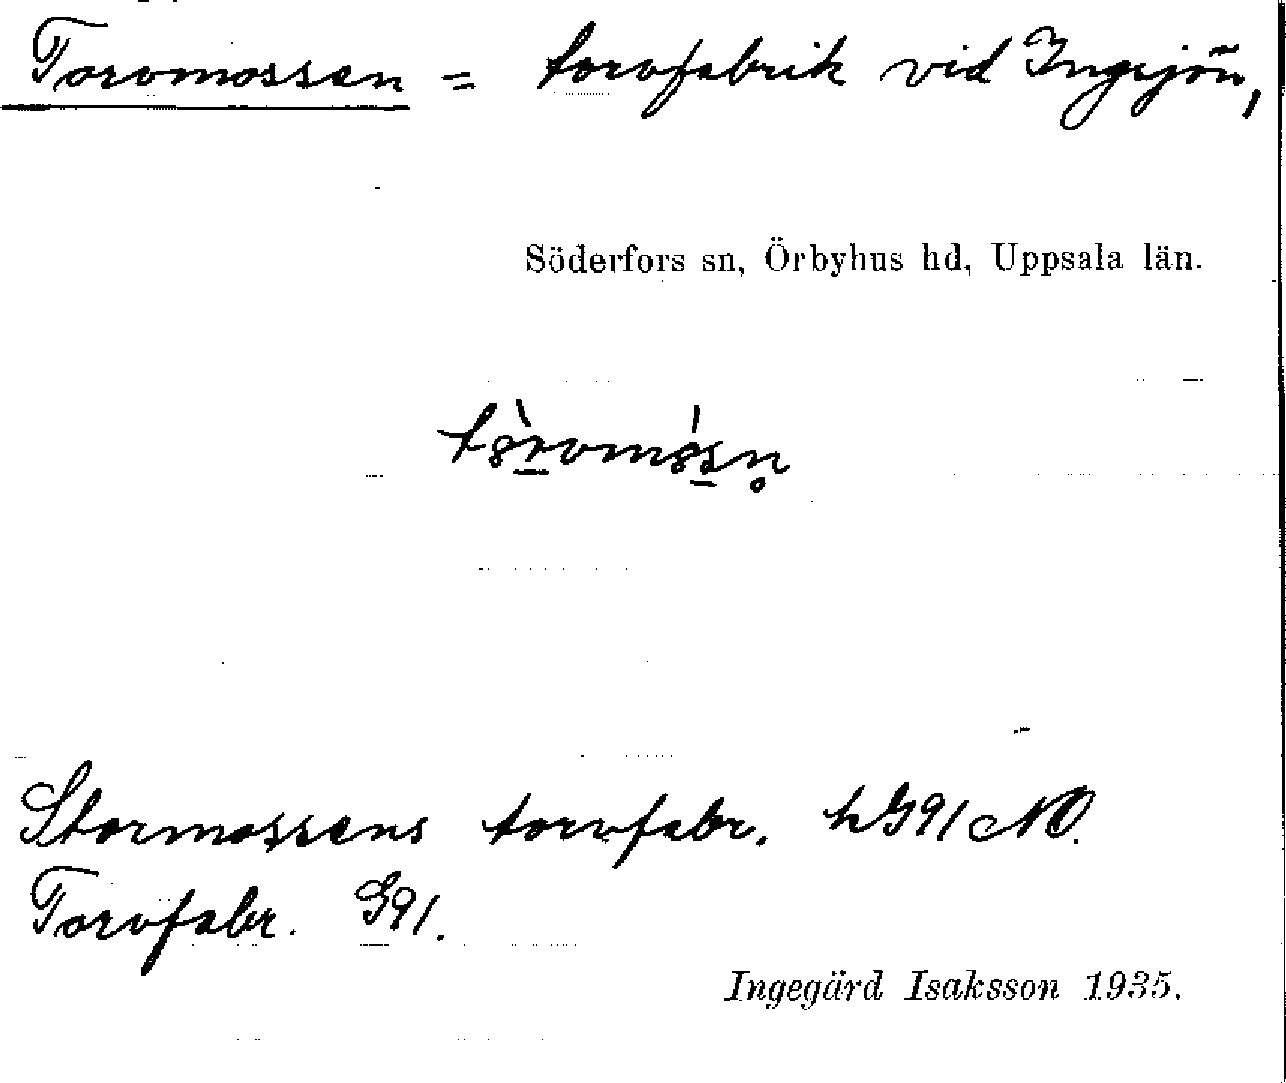 Torvmossen = torvfabrik vid Ingsjön,
Söderfors sn, Örbyhus hd, Uppsala län.
Stormossens torvfabr. hG91 NO.
Torvfabr. G91.
Ingegärd Isaksson 1935.